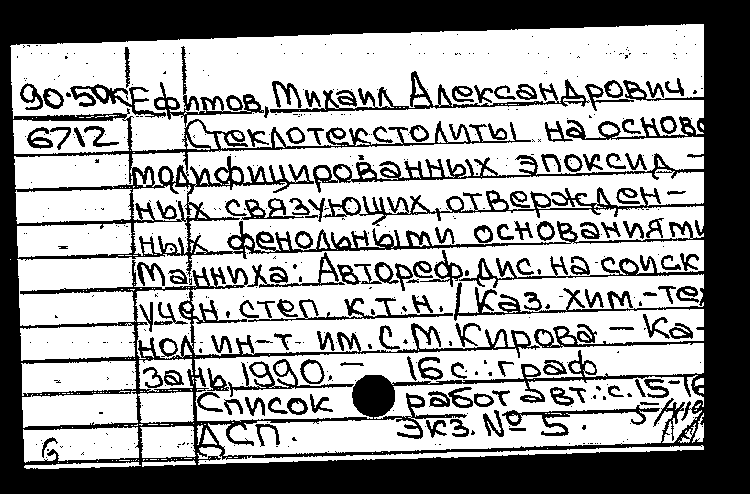 90-50К Ефимов, Михаил Александрович.
6712 Стеклотекстолиты на основе
модифицированных эпоксид-
ных связующих, отвержден-
ных фенольными основаниями
Манниха: Автореф. дис. на соиск
учен. степ. к.т.н. / Каз. хим.-тех
нол. ин-т им. С.М. Кирова. — Ка-
зань, 1990. — 16 с.: граф.
Список работ авт.: с. 15-16
ДСП. Экз. № 5.